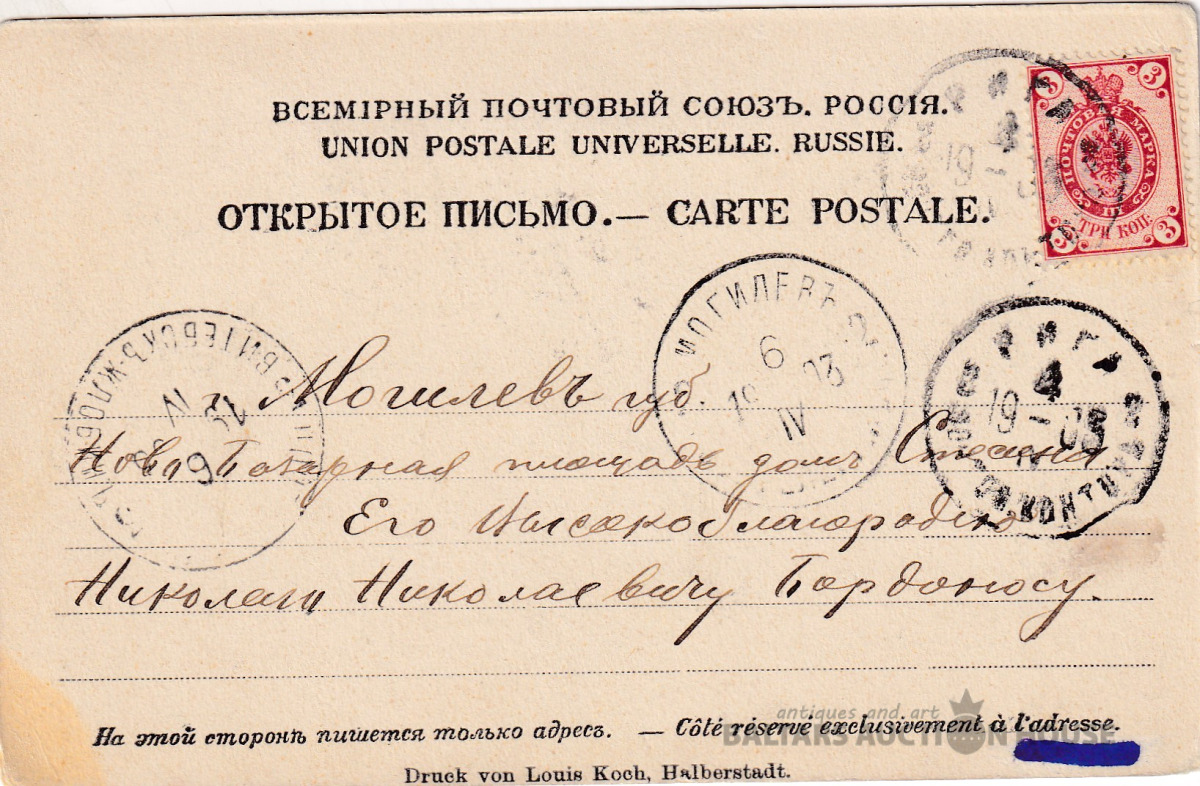 ВСЕМІРНЫЙ ПОЧТОВЫЙ СОЮЗЪ. РОССІЯ.
UNION POSTALE UNIVERSELLE. RUSSIE.
ОТКРЫТОЕ ПИСЬМО.— CARTE POSTALE.
3 3
ПОЧТОВАЯ МАРКА
ТРИ КОП.
3 3
РИГА
4
19 — 03
МОГИЛЕВЪ
6
19 03
IV
РИГА
4
19 — 03
ВИТЕБСКЪ-ЖЛОБ
IV
6
г. Могилевъ губ.
Ново Базарная площадь домъ
Его Высокоблагородію
Николаю Николаевичу Бордоносу.
На этой сторонѣ пишется только адресъ. — Côté réservé exclusivement à l'adresse.
antiques and art
BALTARS AUCTION HOUSE
Druck von Louis Koch, Halberstadt.